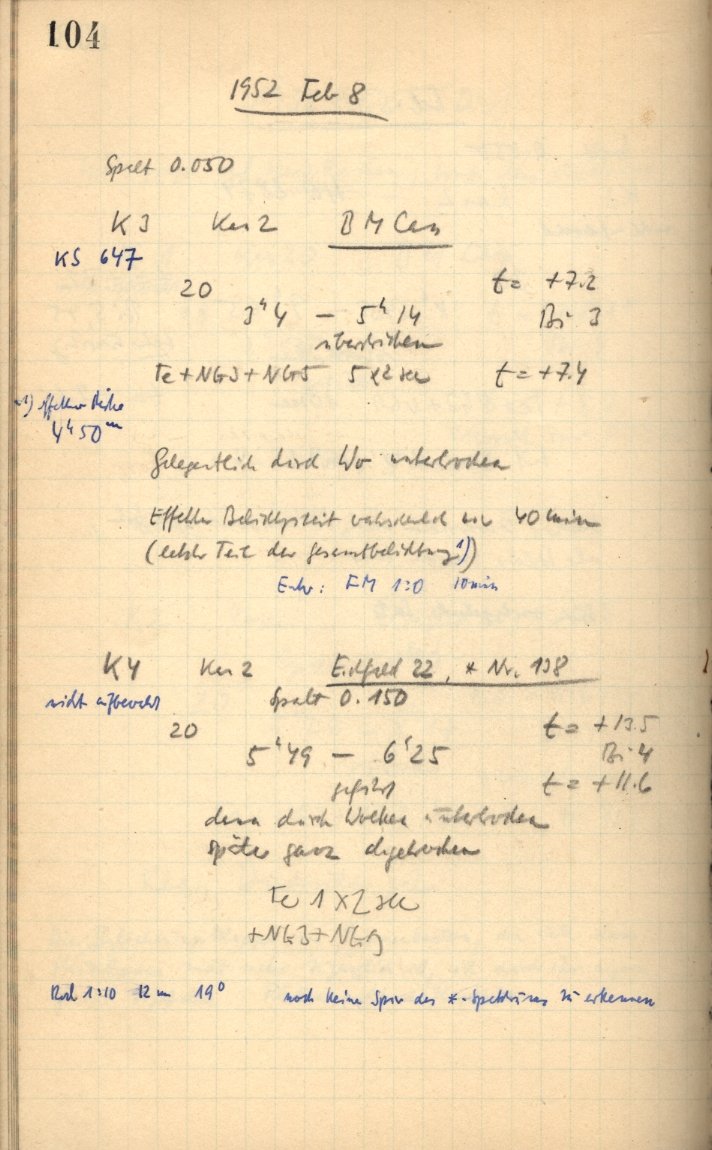 104
1952 Feb 8
Spalt 0.050
K3 Kas 2 BM Cas
KS 647
20 t = +7.2
3h 4 — 5h 14 Bi 3
überstrichen
Fe + NG3 + NG5 5x2 sec t = +7.4
1) effektive Mitte
4h 50m
Gelegentlich durch Wo unterbrochen
Effektive Belichtungszeit wahrscheinlich nur 40 min
(letzter Teil der Gesamtbelichtung 1))
Entw: FM 1:0 10 min
K4 Kas 2 Eichfeld 22, * Nr. 138
nicht aufbewahrt Spalt 0.150
20 t = +13.5
5h 49 — 6h 25 Bi 4
geführt t = +11.6
dann durch Wolken unterbrochen
später ganz abgebrochen
Fe 1 x 2 sec
+NG3+NG9
Rod 1:10 12 m 19° noch keine Spur des *-Spektrums zu erkennen